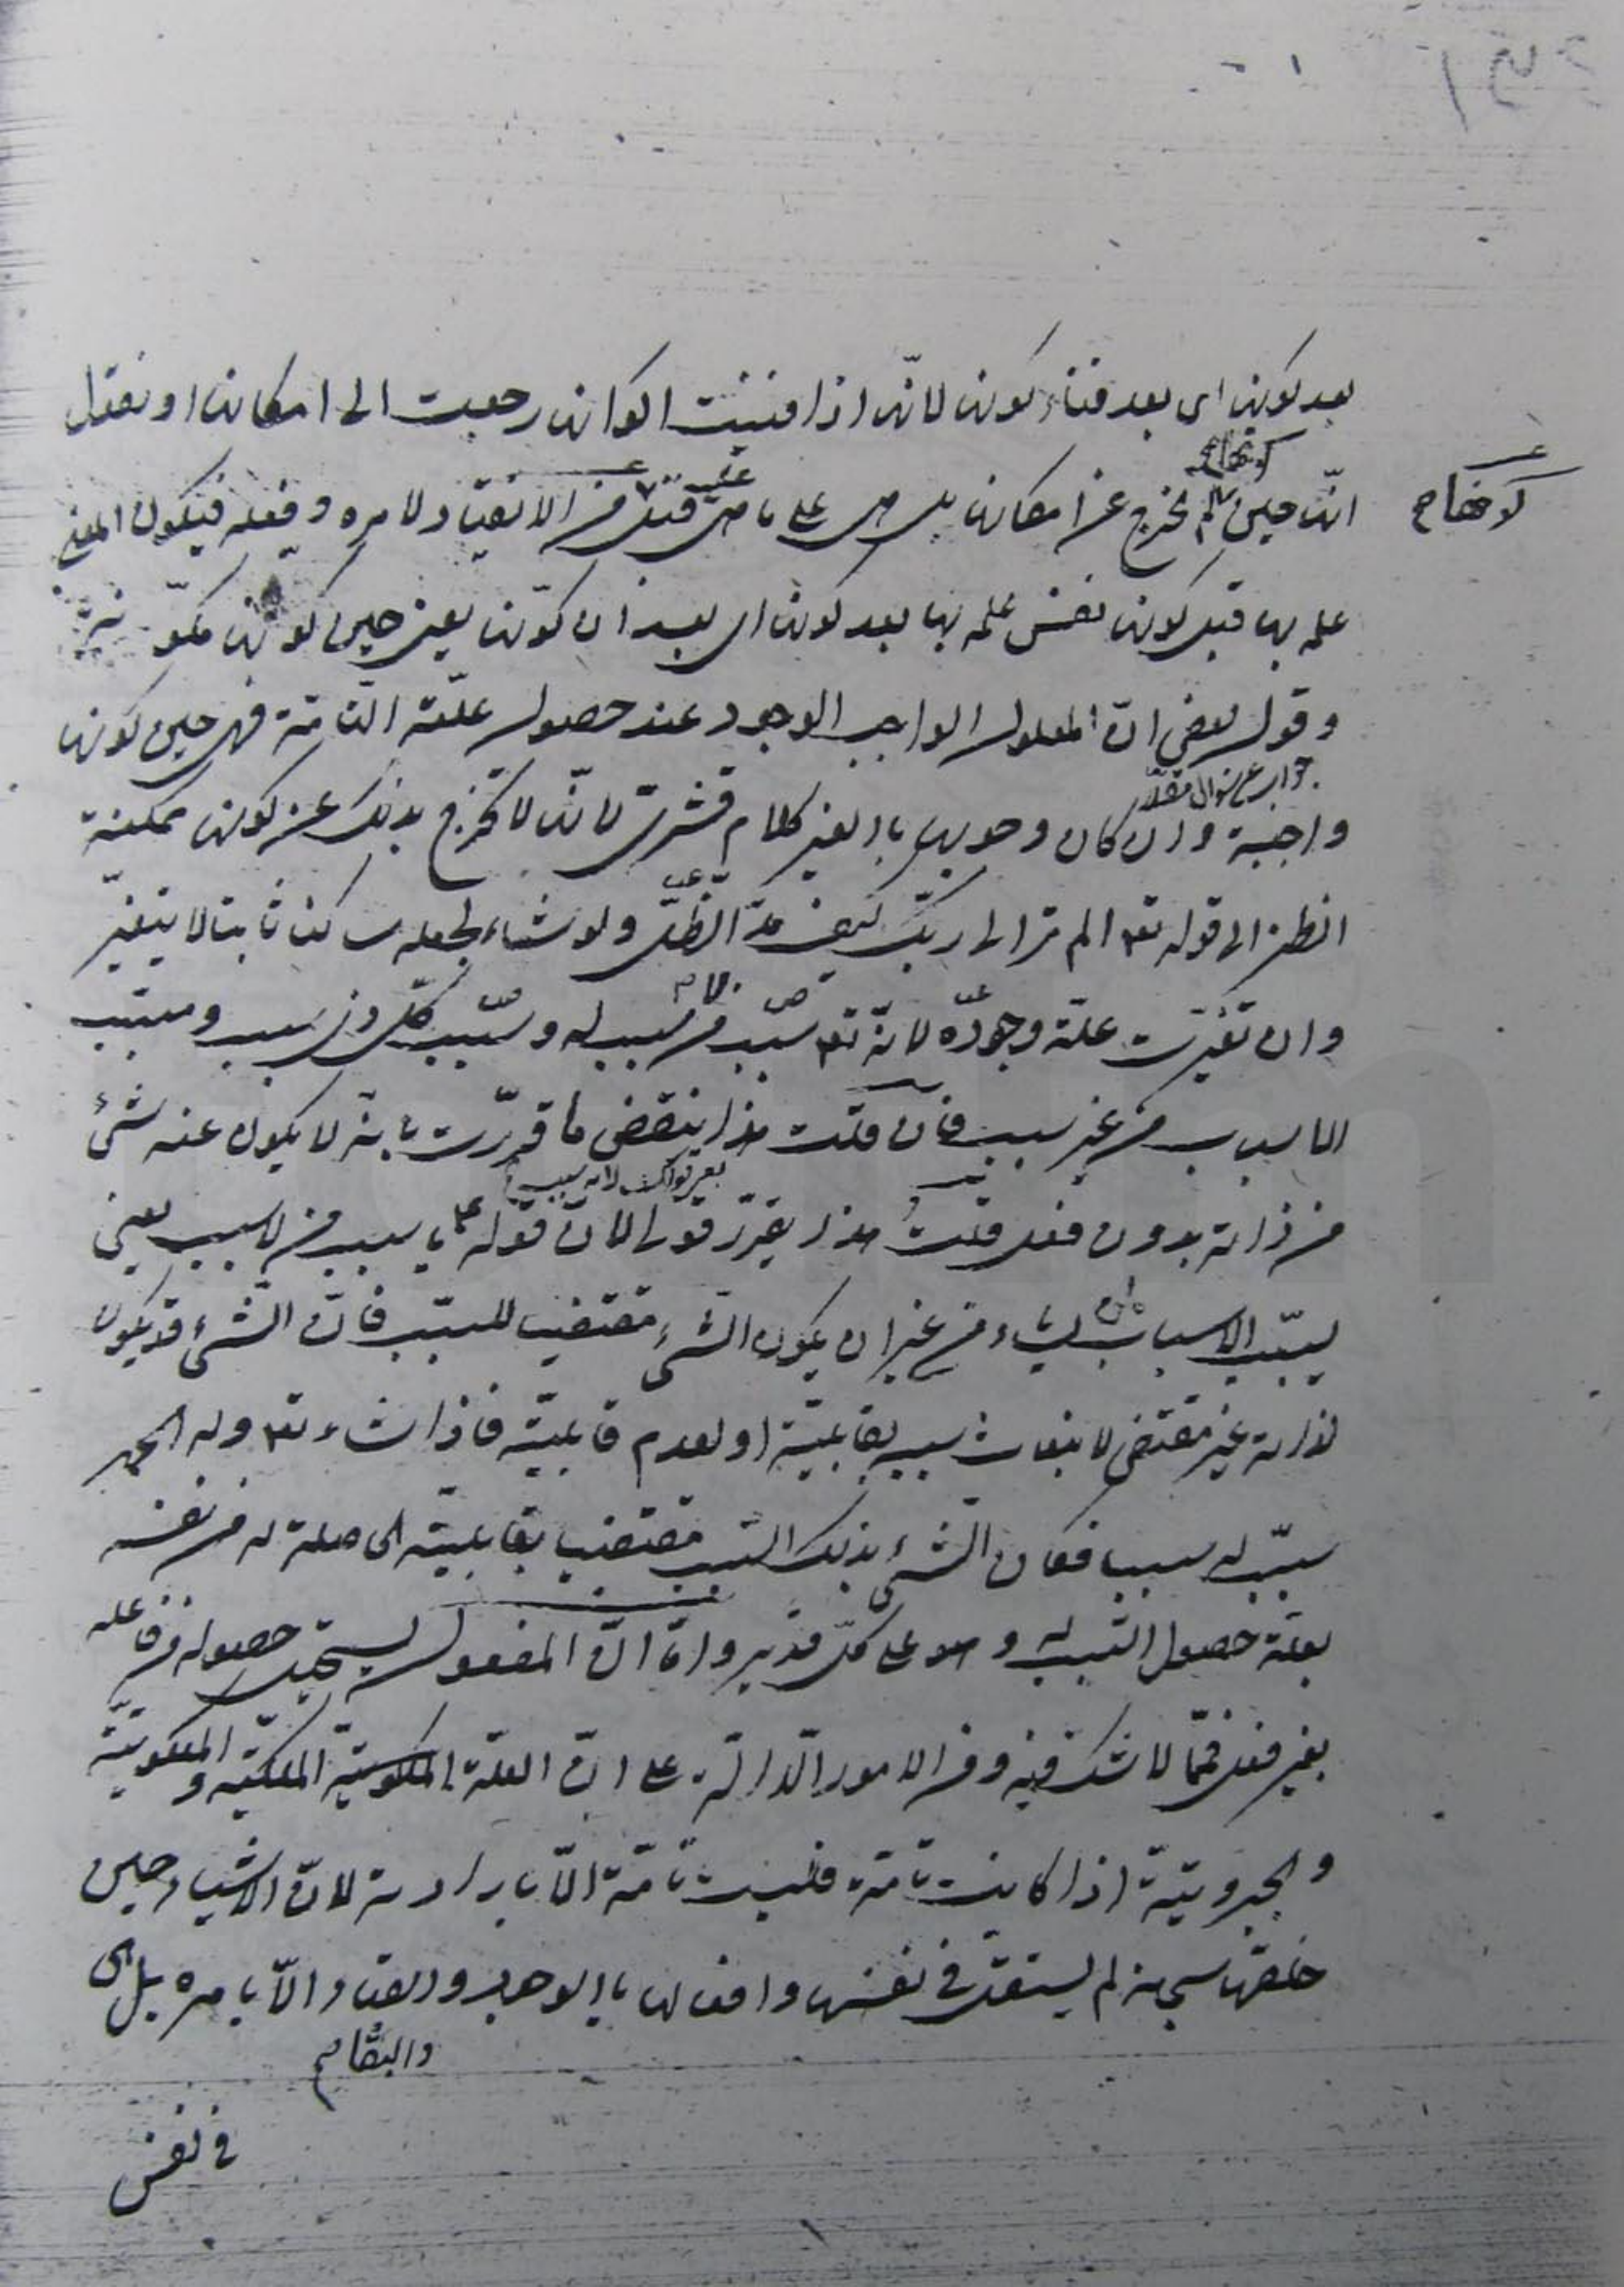 بعد كونها اى بعد فناء كونها لانّها اذا فنيت اكوانها رجعت الى امكانها او نقول
كونها
انّها حين لم تخرج عن امكانها بل هى على ما هى عليه قبل من الانقياد لامره وفعله فيكون المعنى
علمه بها قبل كونها نفس علمه بها بعد كونها اى بعد ان كوّنها يعنى حين كونها مكوّنة
وقول بعض انّ المعلول الواجب الوجود عند حصول علّته التامّة فهى حين كونها
جواب عن سؤال مقدّر
واجبة وان كان وجوبها بالغير كلام قشرىّ لانّها لا تخرج بذلك عن كونها ممكنة
انظر الى قوله تعا الم تر الى ربّك كيف مدّ الظلّ ولو شاء لجعله ساكنا ثابتا لا يتغيّر
وان تغيّرت علّة وجوده لانّه تعا سبّب من سبب له وسبّب كلّ ذى سبب ومسبّب
الاسباب من غير سبب فان قلت هذا ينقض ما قرّرت بانه لا يكون عنه شئ
من ذاته بدون فعل قلت هذا يقرّر قولى لانّ قوله ع يا سبب من لا سبب يعنى
يسبّب الاسباب لمن يشاء من غير ان يكون الشئ مقتضيا للسبب فانّ الشئ قد يكون
لذاته غير مقتض لانبعاث سببه بقابليّته او لعدم قابليّته فاذا شاء تعا وله الحمد
سبّب له سببا فكان الشئ بذلك السبب مقتضيا بقابليّته الى صلته له من نفسه
بعلّة حصول السبب له وهو على كلّ قدير وامّا انّ المفعول يستحيل حصوله من فاعله
بغير فعل فممّا لا شك فيه ومن الامور الدّالّة على انّ العلّة الملكيّة والملكوتيّة
والجبروتيّة اذا كانت تامّة فليست تامّة الّا بارادته لانّ الاشياء حين
خلقها سبحانه لم يستقلّ فى نفسها وافعالها بالوجود والبقاء الّا بامره بل هى
فى نفس